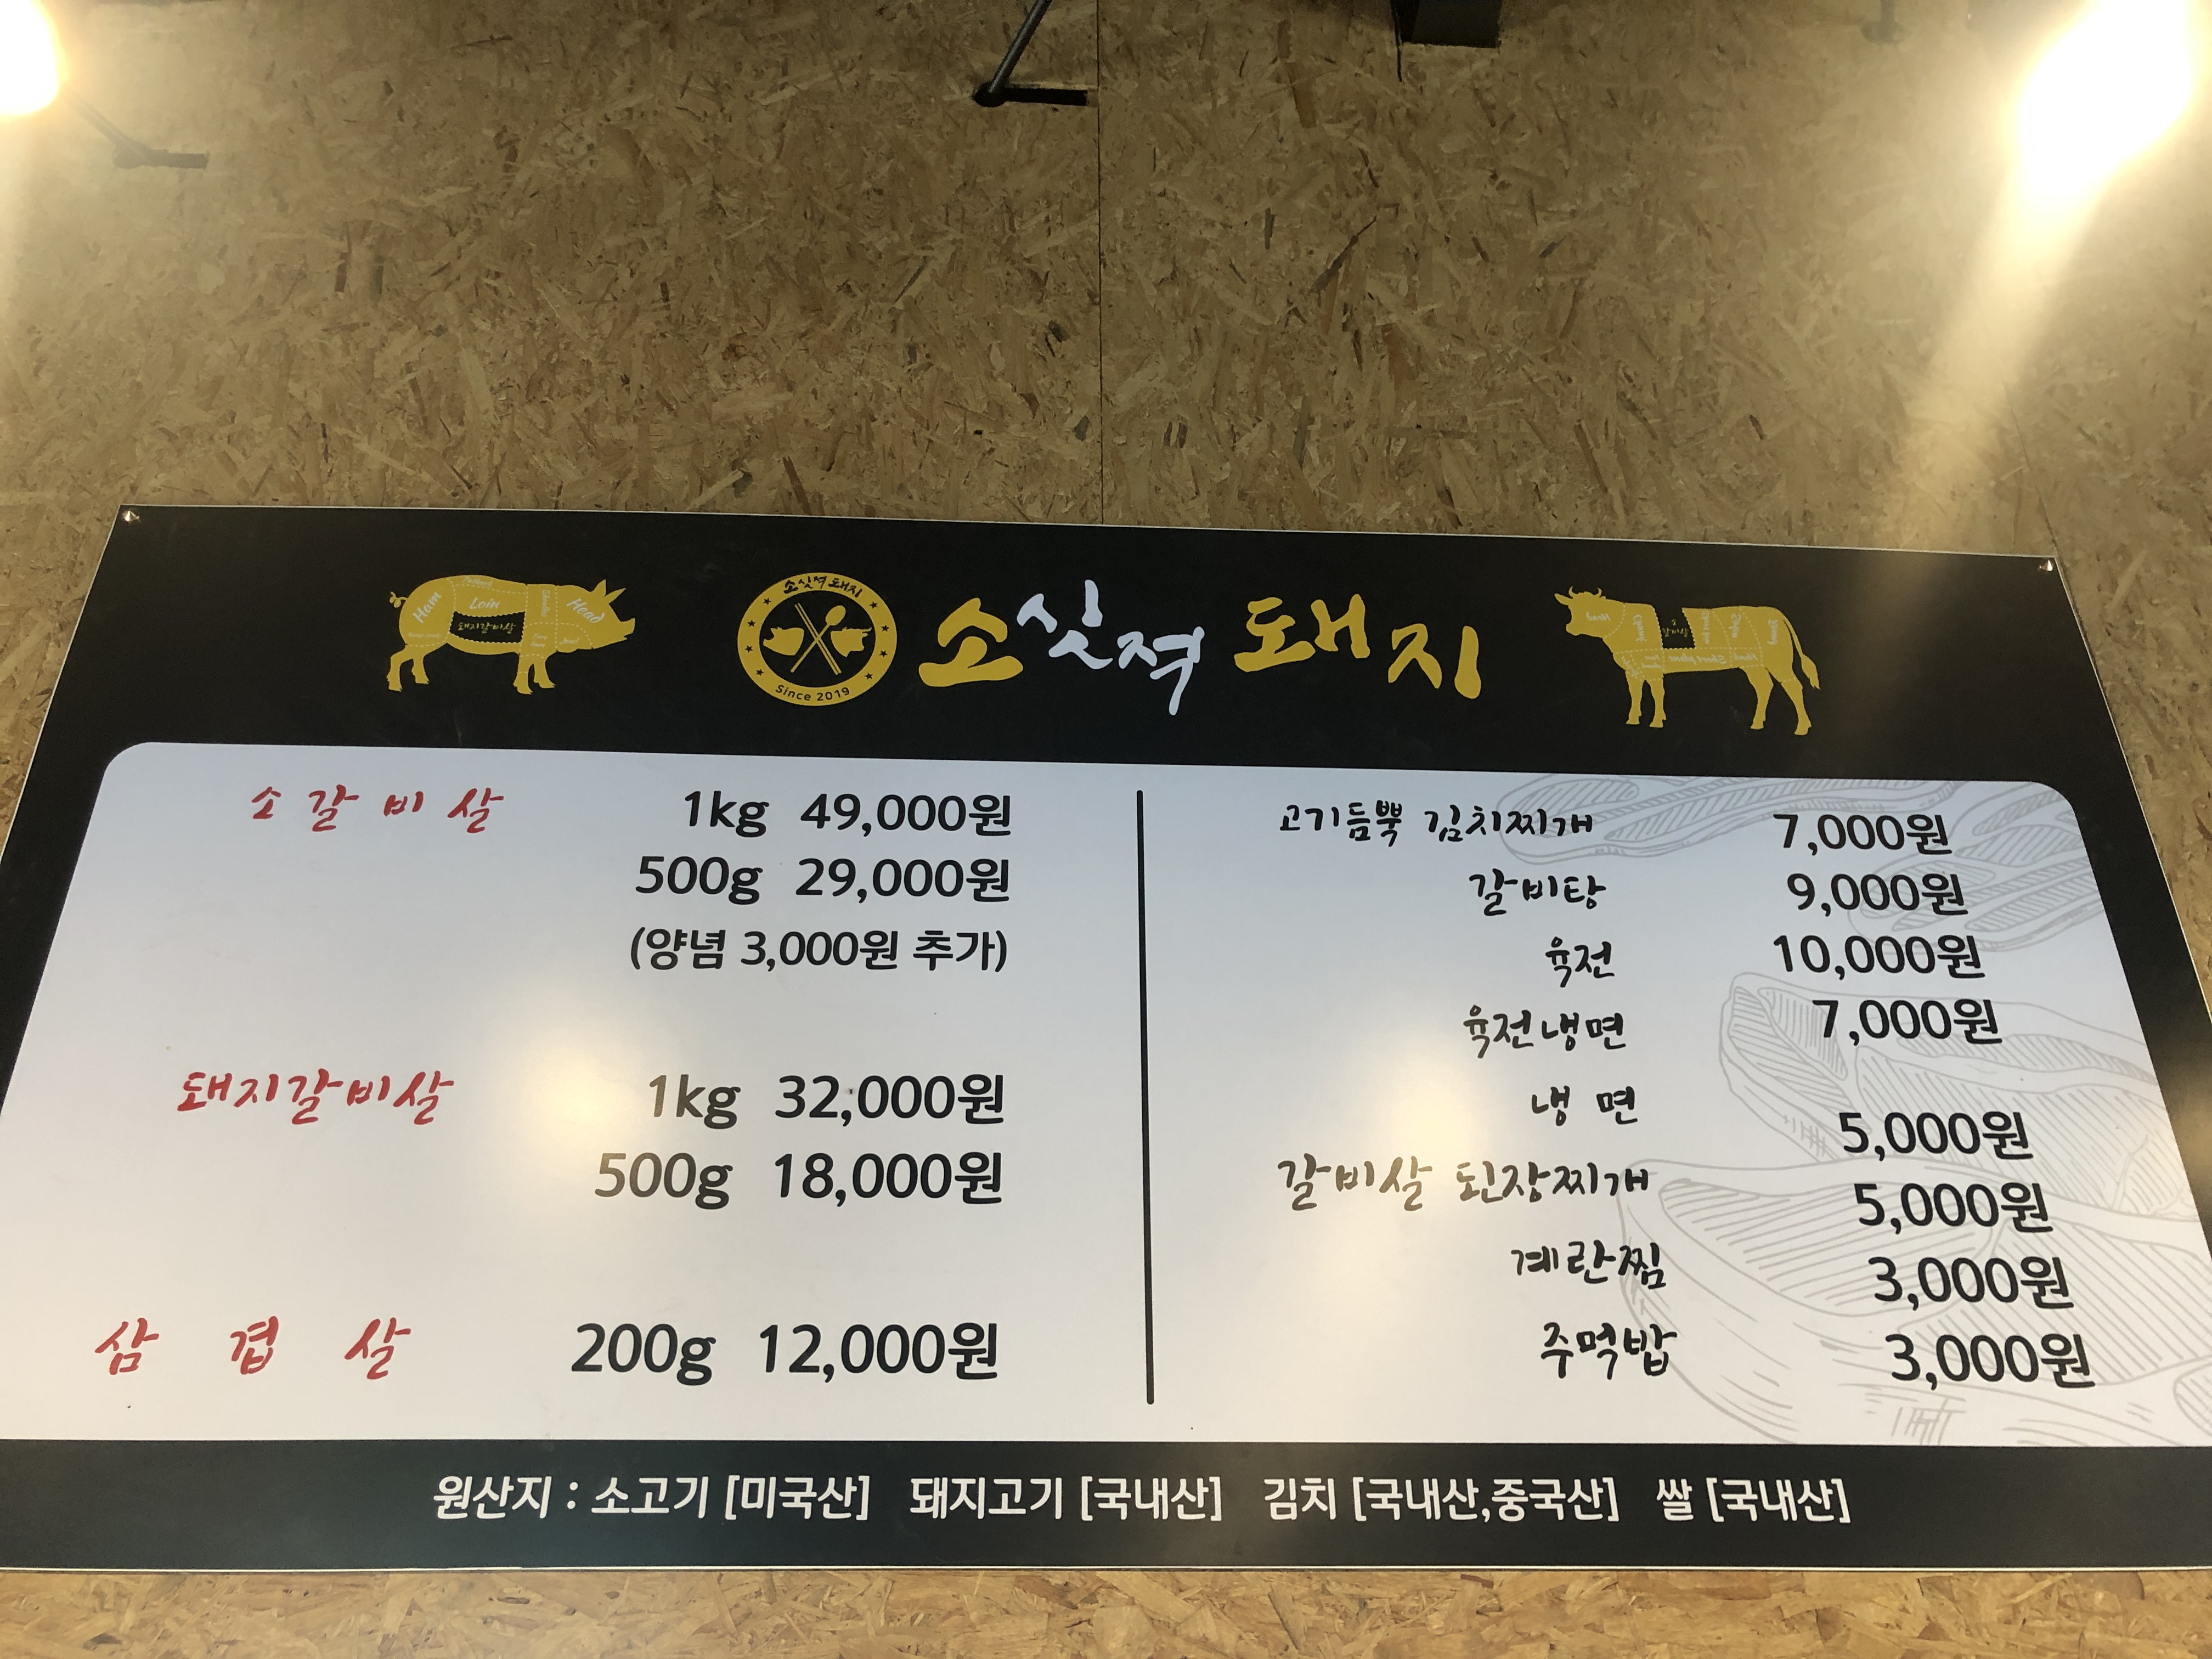 소실적 돼지
Since 2019
소실적 돼지
Ham
Loin
Head
돼지갈비살
소갈비살 1kg 49,000원
500g 29,000원
(양념 3,000원 추가)
돼지갈비살 1kg 32,000원
500g 18,000원
삼겹살 200g 12,000원
고기듬뿍 김치찌개 7,000원
갈비탕 9,000원
육전 10,000원
육전냉면 7,000원
냉면 5,000원
갈비살 된장찌개 5,000원
계란찜 3,000원
주먹밥 3,000원
원산지 : 소고기 [미국산] 돼지고기 [국내산] 김치 [국내산,중국산] 쌀 [국내산]